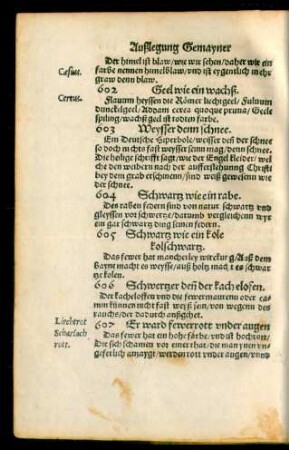 Außlegung Gemayner
Der himel ist blaw / wie wir sehen / daher wie ein
Cæsius.
farbe nennen himelblaw / vnd ist eygentlich mehr
graw denn blaw.
602 Geel wie ein wachß.
Cereus.
Flauum heyssen die Römer liechtgeel / Fuluum
dunckelgeel / Addam cerea quoque pruna / Geele
spilling / wachß geel ist todten farbe.
603 Weysser denn schnee.
Ein Deutsche Hiperbole / weisser deñ der schnee
so doch nichts fast weysser senn mag / denn schnee.
Die heilige schrifft sagt / wie der Engel kleider / wel
che den weibern nach der aufferstehung Christi
bey dem grab erschinenn / sind weiß gewesenn wie
der schnee.
604 Schwartz wie ein rabe.
Den raben federn sind von natur schwartz vnd
gleyssen vor schwertze / darumb vergleichenn wyr
ein gar schwartz ding seinen federn.
605 Schwartz wie ein kole
kolschwartz.
Das fewer hat mancherley wirckung / Auß dem
Gayne macht es weysse / auß holtz mach t es schwar
tze kolen.
606 Schwertzer deñ der kach elofen.
Der kacheloffen vnd die fewermaurenn oder ca-
min künnen nicht fast weyß sein / von wegenn des
rauchs / der dadurch außgehet.
Liechtrot
Scharlach
rott.
607 Er ward fewerrott vnder augen
Das fewer hat ein hohe farbe / vnd ist hochrott /
Die sich schamen vor einer that / die man ynen vn-
geferlich anzaygt / werden rott vnder augen / vnnd